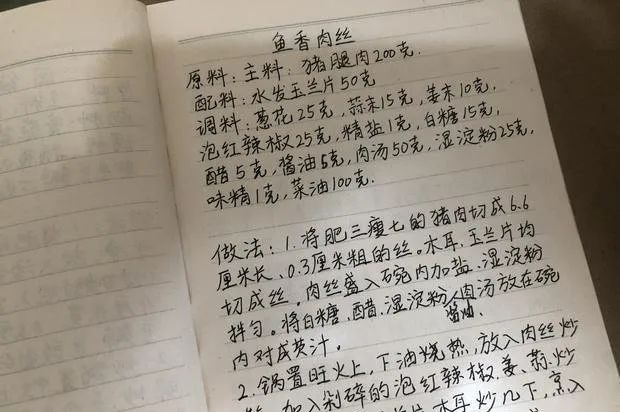 鱼香肉丝
原料:主料:猪腿肉200克.
配料:水发玉兰片50克
调料:葱花25克,蒜末15克,姜末10克,
泡红辣椒25克,精盐1克,白糖15克,
醋5克,酱油5克,肉汤50克,湿淀粉25克,
味精1克,菜油100克.
做法:1.将肥三瘦七的猪肉切成6.6
厘米长、0.3厘米粗的丝。木耳、玉兰片均
切成丝。肉丝盛入碗内加盐.湿淀粉
拌匀。将白糖、醋、湿淀粉、肉汤放在碗
酱油.
内对成芡汁。
2.锅置旺火上,下油烧热,放入肉丝炒
加入剁碎的泡红辣椒.姜、蒜炒
木耳炒几下,烹入